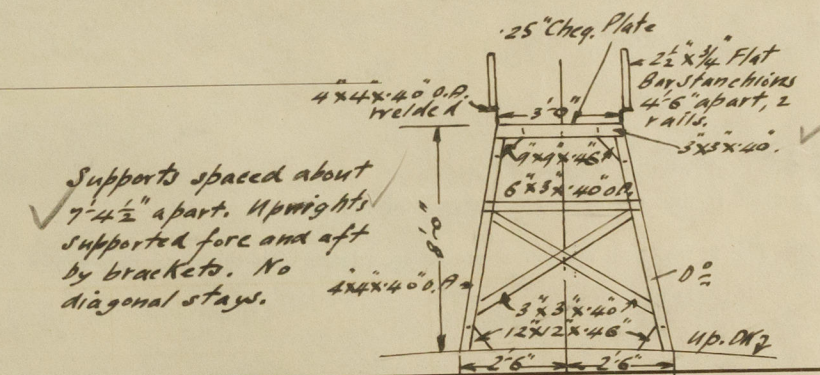 .25" Cheq. Plate
2½" x ¾" Flat
Bar stanchions
4'-6" apart, 2
rails.
4"x4"x.40" O.A.
welded
3'-0"
3"x3"x.40".
9"x9"x.46"
6"x3"x.40" O.A.
Supports spaced about
7'-4½" apart. Uprights
supported fore and aft
by brackets. No
diagonal stays.
8'-0"
4"x4"x.40" O.A
Do
3"x3"x.40"
12"x12"x.46"
up. DK
2'-6" 2'-6"